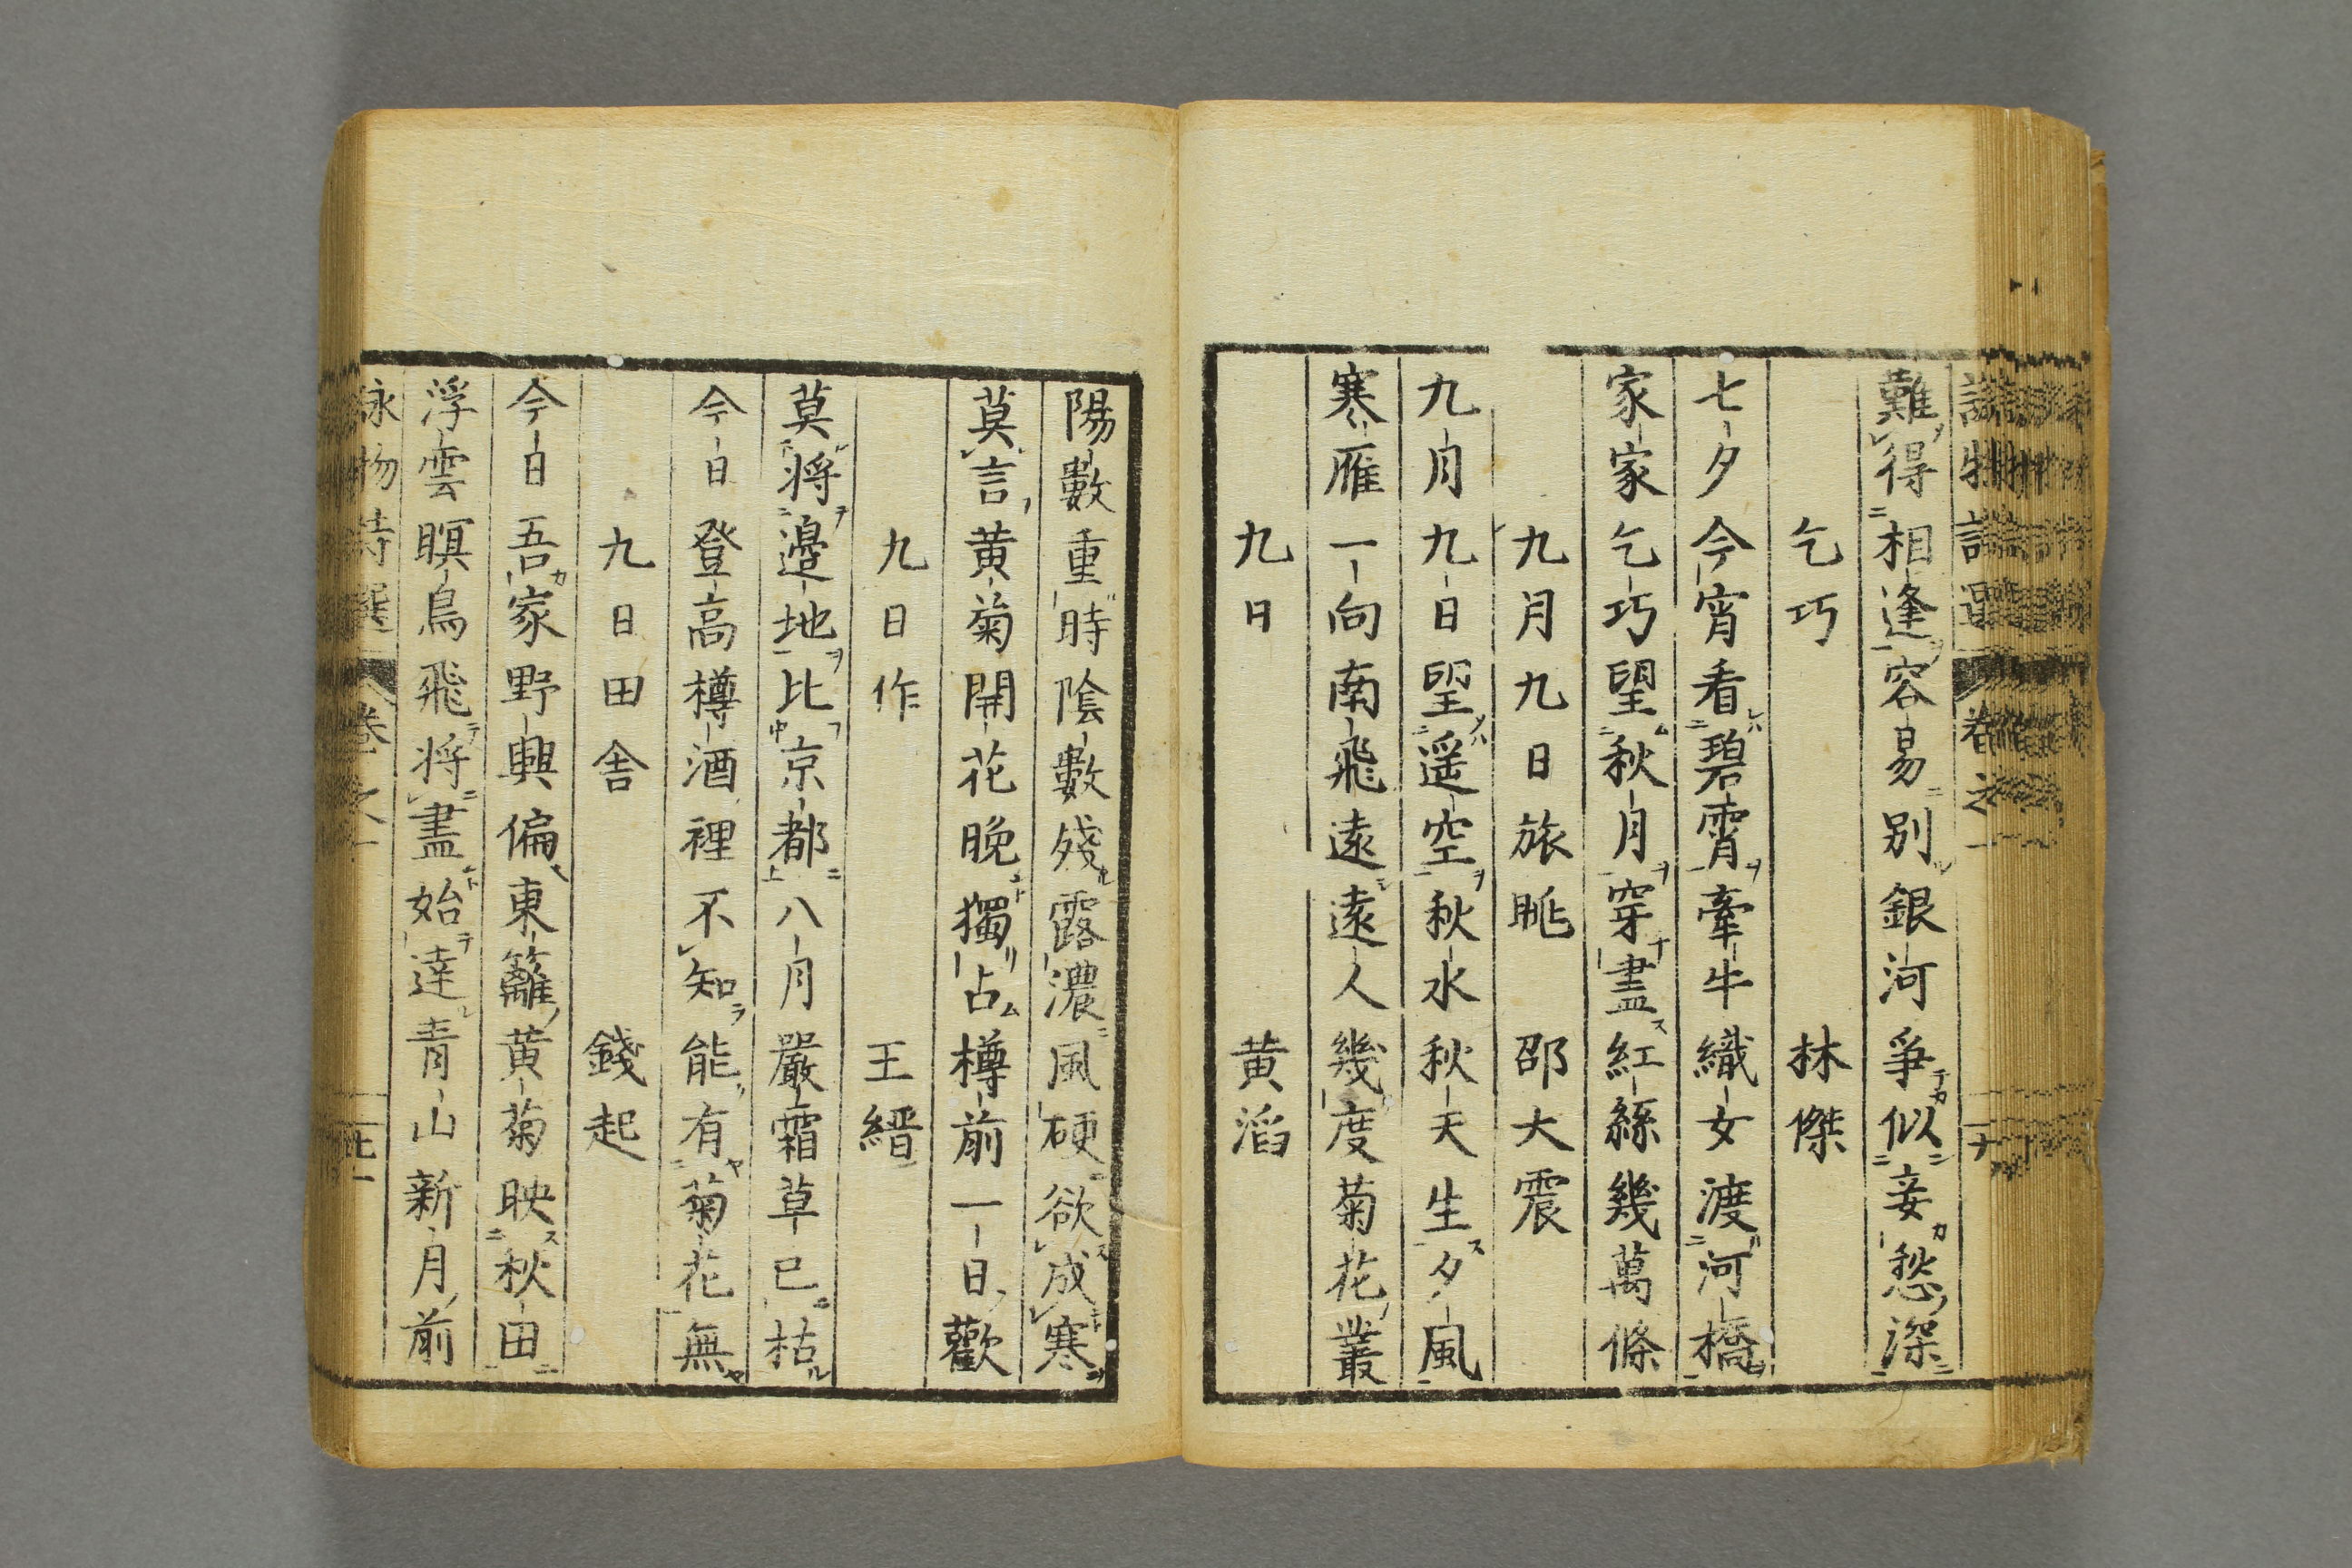 難得相逢容易別銀河爭似妾愁深
乞巧 林傑
七夕今宵看碧霄牽牛織女渡河橋
家家乞巧望秋月穿盡紅絲幾萬條
九月九日旅眺 邵大震
九月九日望遥空秋水秋天生夕風
寒雁一向南飛遠遠人幾度菊花叢
九日 黄滔
陽數重時陰數殘露濃風硬欲成寒
莫言黄菊開花晚獨占樽前一日歡
九日作 王縉
莫將邊地比京都八月嚴霜草已枯
今日登高樽酒裡不知能有菊花無
九日田舎 錢起
今日吾家野興偏東籬黄菊映秋田
浮雲瞑鳥飛将盡始達青山新月前
詠物詩選 卷之一